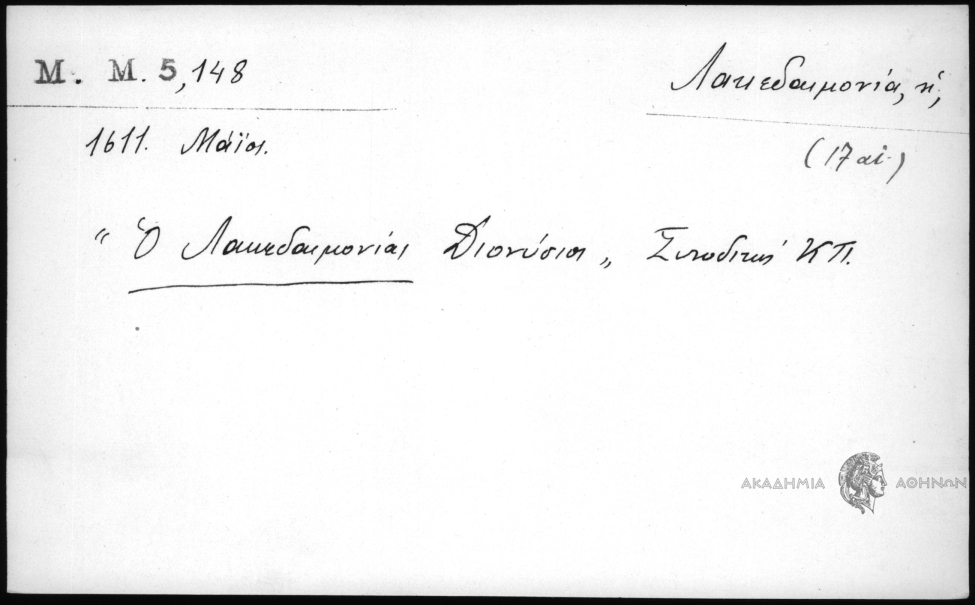 M. M. 5,148
Λακεδαιμονία, ἡ,
1611. Μάϊος.
(17 αἰ.)
“ Ὁ Λακεδαιμονίας Διονύσιος „ Συνοδικῶς ΚΠ.
ΑΚΑΔΗΜΙΑ ΑΘΗΝΩΝ